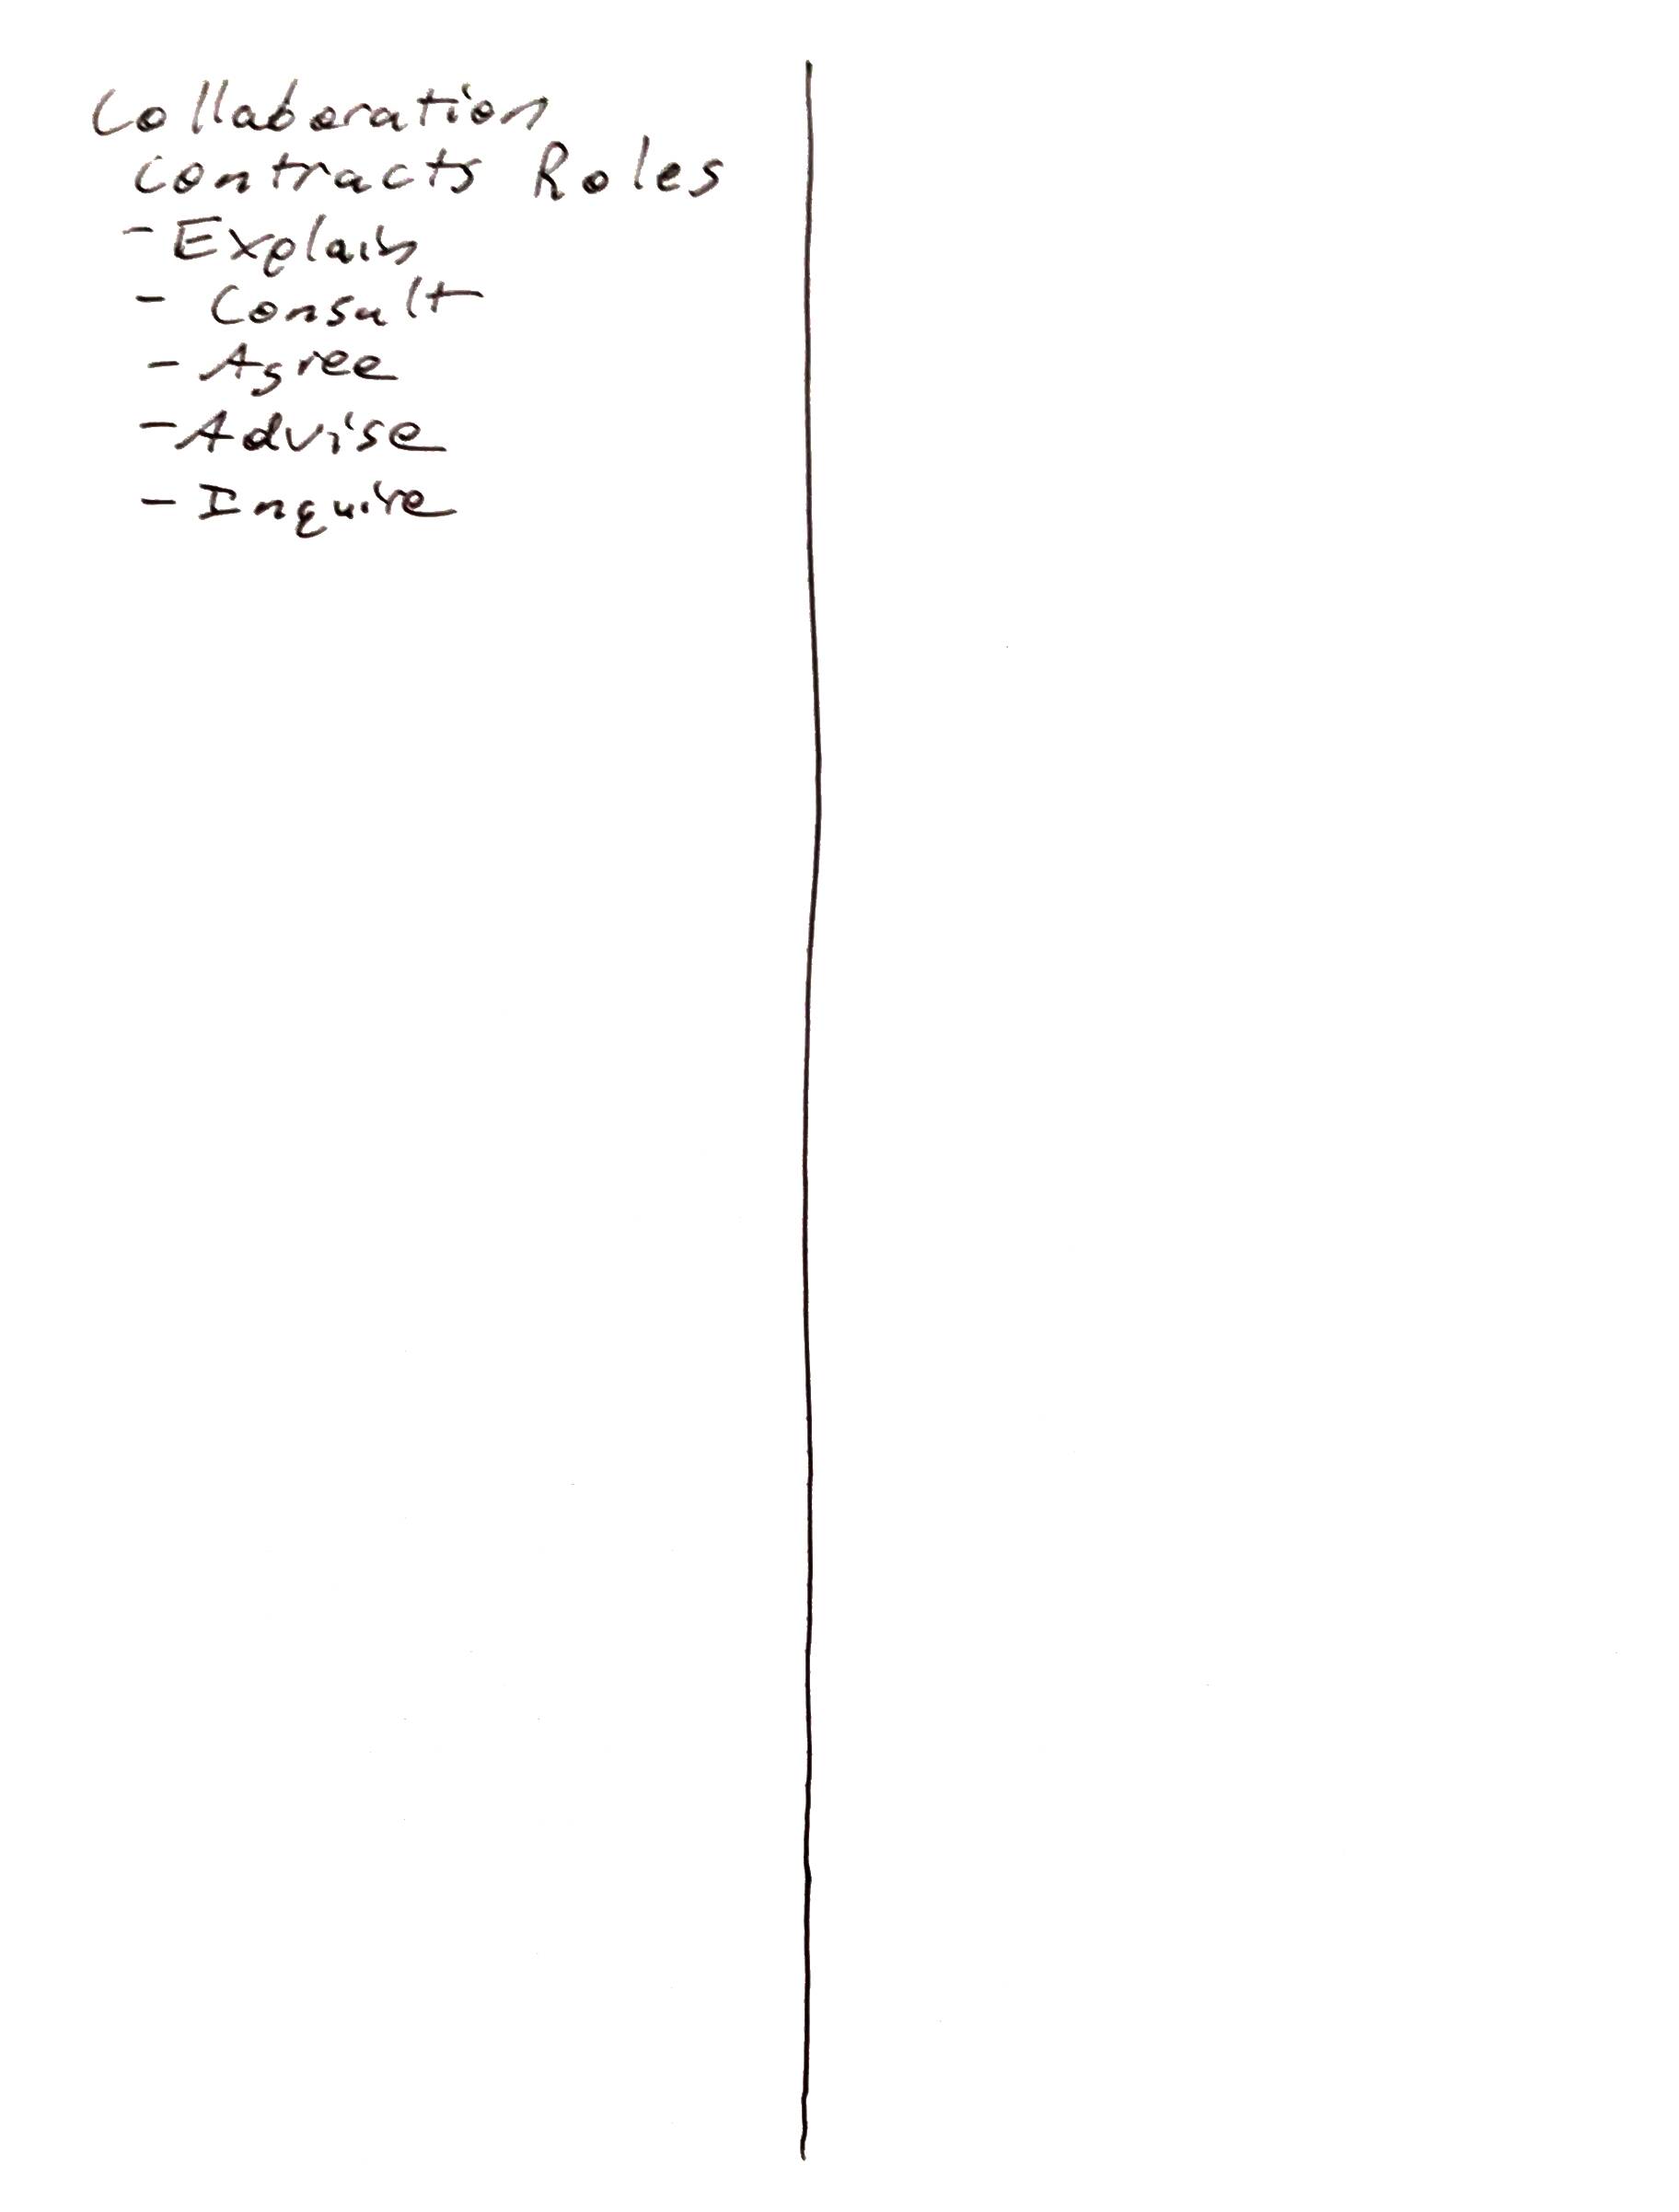 Collaboration
contracts Roles
- Explain
- Consult
- Agree
- Advise
- Inquire